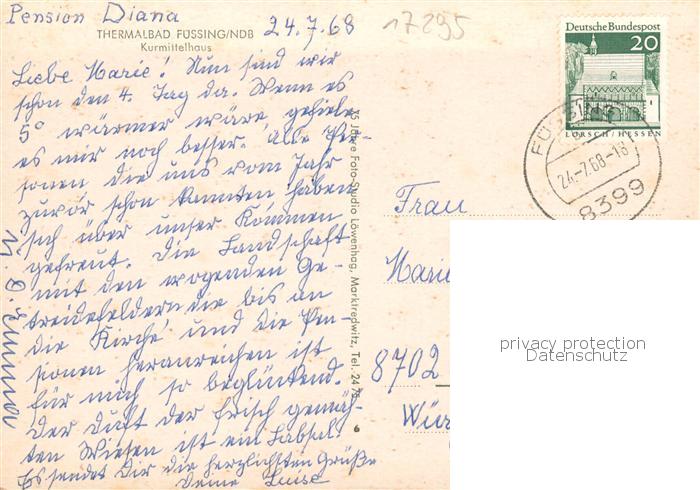 Pension Diana
THERMALBAD FÜSSING/NDB
Kurmittelhaus
24.7.68
17295
Liebe Marie! Nun sind wir
schon den 4. Tag da. Wenn es
5° wärmer wäre, gefiele
es mir noch besser. Alle Per-
sonen die uns vom Jahr
zuvor schon kannten haben
sich über unser Kommen
gefreut. Die Landschaft
mit den wogenden Ge-
treidefeldern die bis an
die Kirche und die Pen-
sionen heranreichen ist
für mich so beglückend.
Der Duft der frisch gemäh-
ten Wiesen ist ein Labsal.
Es sendet Dir die herzlichsten Grüße
Deine Luise
75 Jahre Foto-Studio Löwenhag, Marktredwitz, Tel. 24 75
6
Deutsche Bundespost
20
LORSCH/HESSEN
24.-7.68-18
8399
Frau
Marie
8702
Wür
privacy protection
Datenschutz